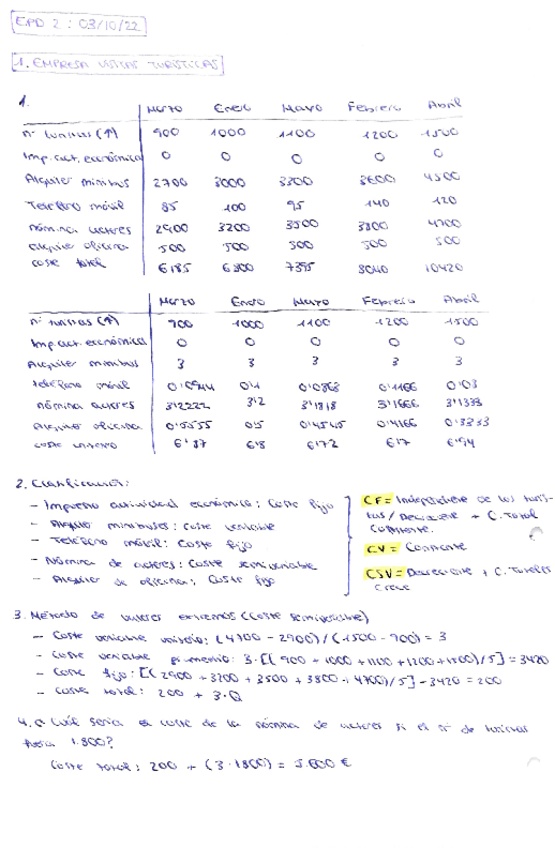 EPD 2 : 03/10/22
1. EMPRESA VISITAS TURÍSTICAS
1.
Marzo Enero Mayo Febrero Abril
nº turistas (↑) 900 1000 1100 1200 1500
Imp. act. económica 0 0 0 0 0
Alquiler minibus 2700 3000 3300 3600 4500
Teléfono móvil 85 100 95 140 120
nómina actores 2900 3200 3500 3800 4700
alquiler oficina 500 500 500 500 500
coste total 6185 6800 7395 8040 10420
Marzo Enero Mayo Febrero Abril
nº turistas (↑) 900 1000 1100 1200 1500
Imp. act. económica 0 0 0 0 0
Alquiler minibus 3 3 3 3 3
teléfono móvil 0'0944 0'1 0'0863 0'1166 0'03
nómina actores 3'2222 3'2 3'1818 3'1666 3'1333
Alquiler oficina 0'5555 0'5 0'4545 0'4166 0'3333
coste unitario 6'87 6'8 6'72 6'7 6'94
2. Clasificación:
- Impuesto actividad económica: Coste fijo
- Alquiler minibuses: coste variable
- Teléfono móvil: Coste fijo
- Nómina de actores: Coste semivariable
- Alquiler de oficina: Coste fijo
CF = Independiente de los turis-
tas / Decrece + C. Total
Constante.
CV = Constante
CSV = Decreciente + C. Totales
Crece
3. Método de valores extremos (Coste semivariable)
- Coste variable unitario: (4700 - 2900) / (1500 - 900) = 3
- Coste variable promedio: 3·[(900 + 1000 + 1100 + 1200 + 1500)/5] = 3420
- Coste fijo: [(2900 + 3200 + 3500 + 3800 + 4700)/5] - 3420 = 200
- Coste total: 200 + 3·Q
4. ¿Cuál sería el coste de la nómina de actores si el nº de turistas
fuera 1.800?
Coste total: 200 + (3·1800) = 5.600 €